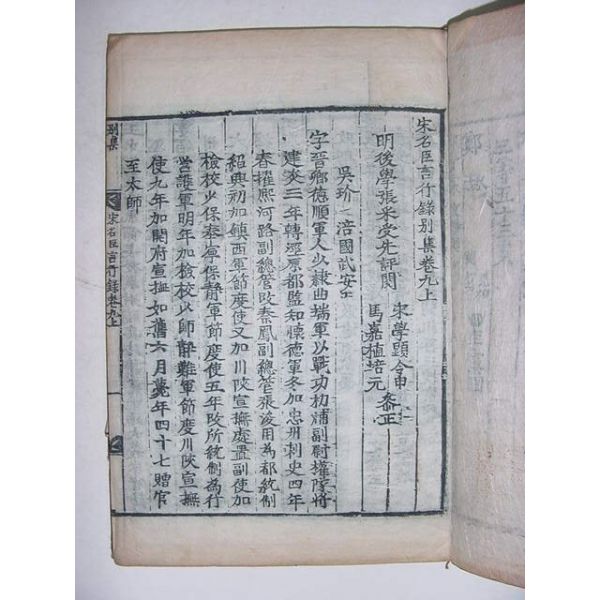 宋名臣言行錄別集卷九上
明後學張采受先評閱
宋學顯令申
馬嘉植培元
叅正
吳玠
涪國武安王
字晉卿德順軍人少隸曲端軍以戰功補副尉擢隊將
建炎二年轉涇原都監知懷德軍冬加忠州刺史四年
春擢熙河路副總管改秦鳳副總管張浚用為都統制
紹興初加鎮西軍節度使又加川陝宣撫處置副使加
檢校少保奉寧保靜軍節度使五年改所統制為行
營護軍明年加檢校少師靜難軍節度川陝宣撫
使九年加開府宣撫如舊六月薨年四十七贈官
至太師
別集
宋名臣言行錄卷九上